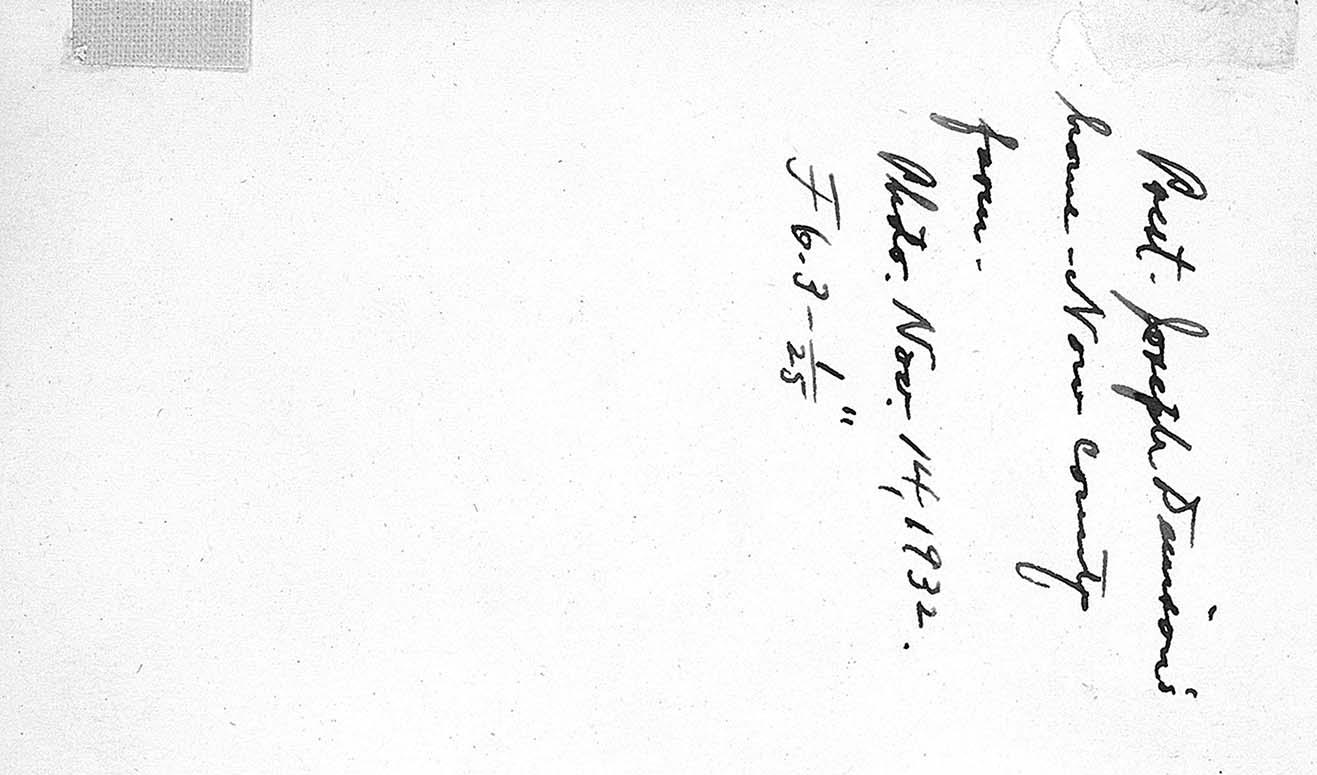 Prest. Joseph Davison's
home - Now County
farm -
Photo. Nov. 14, 1932.
F 6.3 - 1/25"